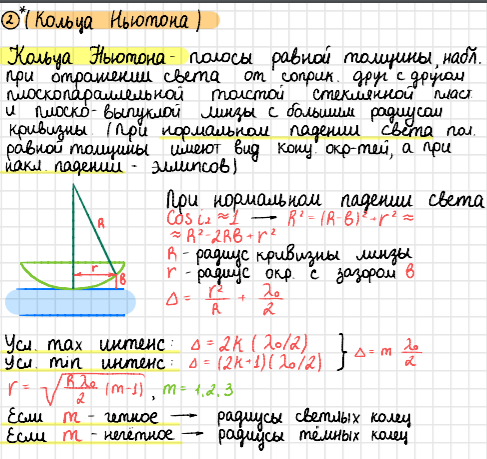 2* (Кольца Ньютона)
Кольца Ньютона - полосы равной толщины, набл.
при отражении света от соприк. друг с другом
плоскопараллельной толстой стеклянной пласт.
и плоско-выпуклой линзы с большим радиусом
кривизны (при нормальном падении света пол.
равной толщины имеют вид конц. окр-тей, а при
накл. падении - эллипсов)
При нормальном падении света
Cos i₂ ≈ 1 → R² = (R-b)² + r² ≈
≈ R² - 2Rb + r²
R - радиус кривизны линзы
r - радиус окр. с зазором b
Δ = r²/R + λ₀/2
R
r
b
Усл. max интенс: Δ = 2k (λ₀/2)
Усл. min интенс: Δ = (2k+1)(λ₀/2) } Δ = m λ₀/2
r = √(Rλ₀/2 (m-1)), m = 1,2,3
Если m - чётное → радиусы светлых колец
Если m - нечётное → радиусы тёмных колец